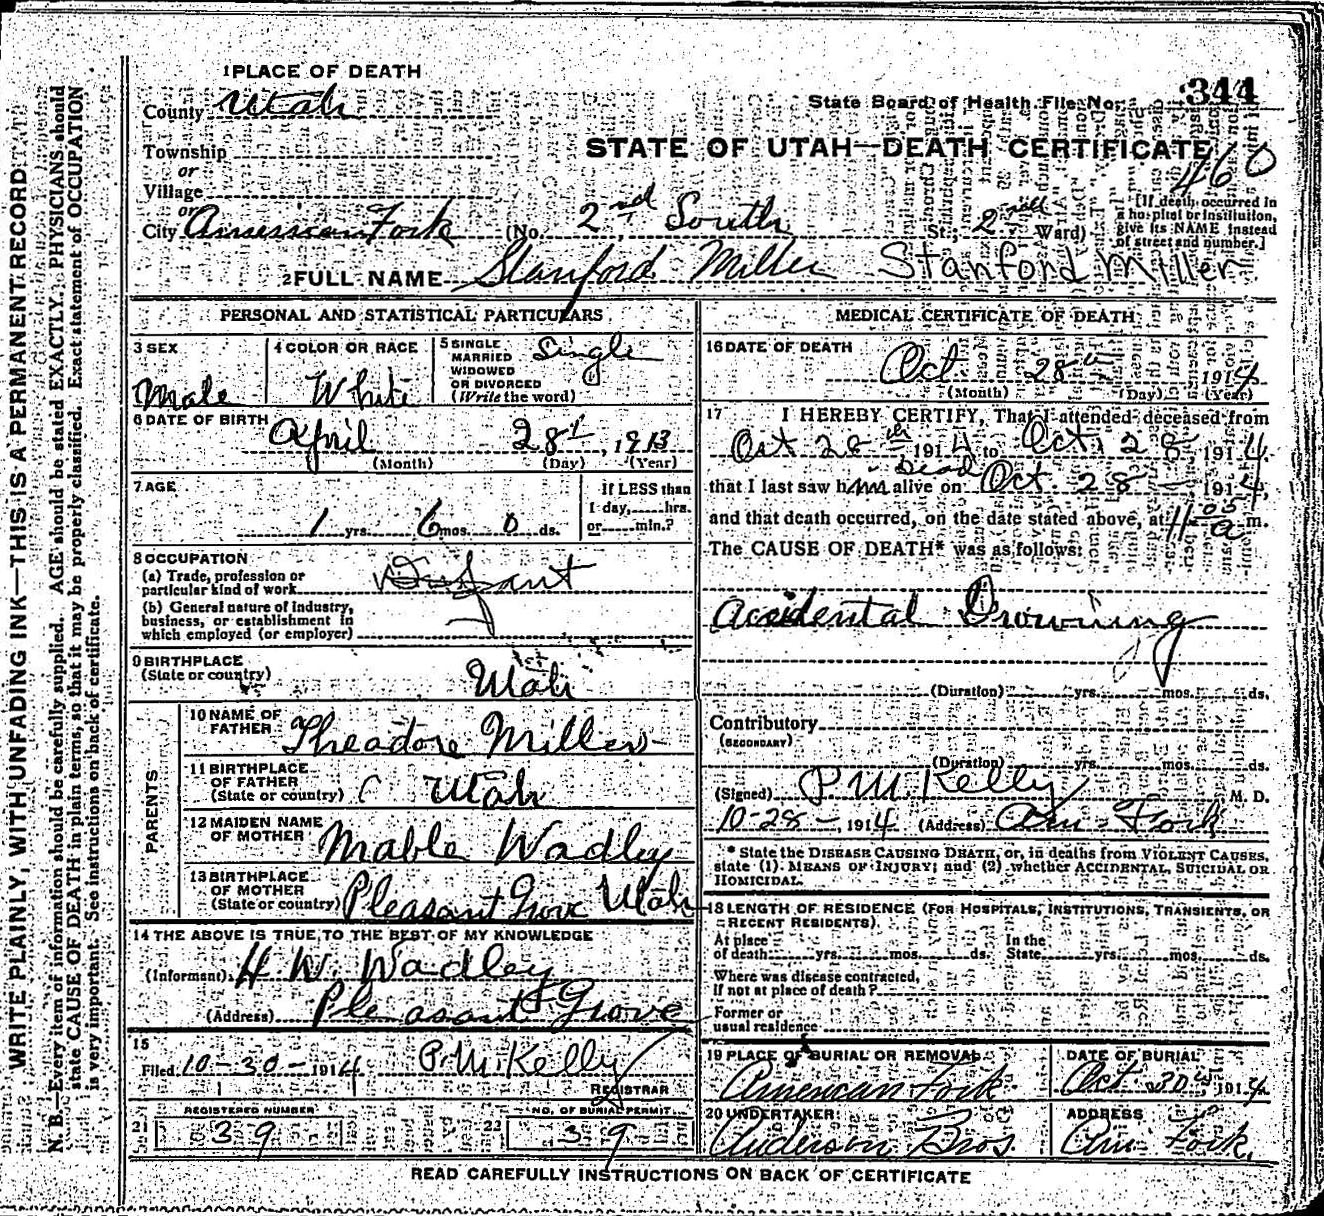 1 PLACE OF DEATH
County Utah
State Board of Health File No. 344
Township
STATE OF UTAH—DEATH CERTIFICATE
460
or
Village
or
City American Fork (No. 2nd South St.; 2nd Ward)
[If death occurred in
a hospital or institution,
give its NAME instead
of street and number.]
2 FULL NAME Stanford Miller Stanford Miller
PERSONAL AND STATISTICAL PARTICULARS
3 SEX
Male
4 COLOR OR RACE
White
5 SINGLE
MARRIED
WIDOWED
OR DIVORCED
(Write the word)
Single
6 DATE OF BIRTH
April 28th, 1913
(Month) (Day) (Year)
7 AGE
1 yrs. 6 mos. 0 ds.
If LESS than
1 day, hrs.
or min.?
8 OCCUPATION
(a) Trade, profession or
particular kind of work Infant
(b) General nature of industry,
business, or establishment in
which employed (or employer)
9 BIRTHPLACE
(State or country) Utah
PARENTS
10 NAME OF
FATHER Theadore Miller
11 BIRTHPLACE
OF FATHER
(State or country) Utah
12 MAIDEN NAME
OF MOTHER Mable Wadley
13 BIRTHPLACE
OF MOTHER
(State or country) Pleasant Grove Utah
14 THE ABOVE IS TRUE TO THE BEST OF MY KNOWLEDGE
(Informant) H. W. Wadley
(Address) Pleasant Grove
15
Filed 10-30-1914 P. M. Kelly
REGISTRAR
REGISTERED NUMBER
21 39
NO. OF BURIAL PERMIT
22 39
MEDICAL CERTIFICATE OF DEATH
16 DATE OF DEATH
Oct 28th 1914
(Month) (Day) (Year)
17 I HEREBY CERTIFY, That I attended deceased from
Oct 28th 1914 to Oct. 28 1914,
dead
that I last saw him alive on Oct. 28 1914,
and that death occurred, on the date stated above, at 11 05 a m.
The CAUSE OF DEATH* was as follows:
Accidental Drowning
(Duration) yrs. mos. ds.
Contributory
(SECONDARY)
(Duration) yrs. mos. ds.
(Signed) P M Kelly M. D.
10-28-, 1914 (Address) Am. Fork
* State the DISEASE CAUSING DEATH, or, in deaths from VIOLENT CAUSES,
state (1) MEANS OF INJURY; and (2) whether ACCIDENTAL, SUICIDAL OR
HOMICIDAL.
18 LENGTH OF RESIDENCE (FOR HOSPITALS, INSTITUTIONS, TRANSIENTS, OR
RECENT RESIDENTS).
At place
of death yrs. mos. ds.
In the
State yrs. mos. ds.
Where was disease contracted,
If not at place of death?
Former or
usual residence
19 PLACE OF BURIAL OR REMOVAL
American Fork
DATE OF BURIAL
Oct 30th 1914
20 UNDERTAKER
Anderson Bros.
ADDRESS
Am. Fork.
READ CAREFULLY INSTRUCTIONS ON BACK OF CERTIFICATE
WRITE PLAINLY, WITH UNFADING INK—THIS IS A PERMANENT RECORD
N. B.—Every item of information should be carefully supplied. AGE should be stated EXACTLY. PHYSICIANS should
state CAUSE OF DEATH in plain terms, so that it may be properly classified. Exact statement of OCCUPATION
is very important. See instructions on back of certificate.